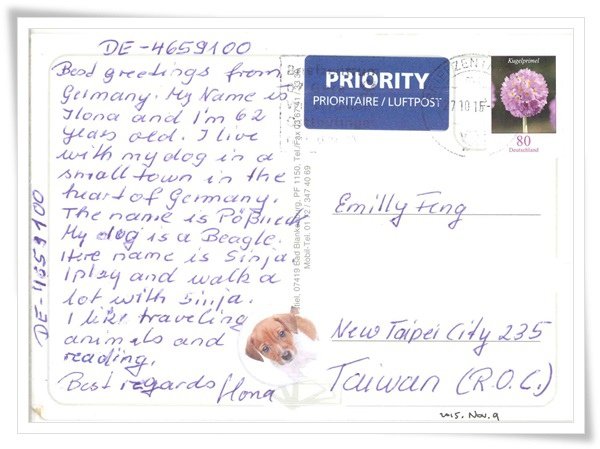 DE-4659100
Best greetings from
Germany. My Name is
Ilona and I'm 62
years old. I live
with my dog in a
small town in the
heart of Germany.
The name is Pößneck
My dog is a Beagle.
Here name is Sinja.
I play and walk a
lot with Sinja.
I like traveling,
animals and
reading.
Best regards Ilona
DE-4659100
07419 Bad Blankenburg, PF 1150, Tel./Fax
Mobil-Tel.
PRIORITY
PRIORITAIRE / LUFTPOST
Kugelprimel
80
Deutschland
Emilly Feng
New Taipei City 235
Taiwan (R.O.C.)
2015. Nov. 9